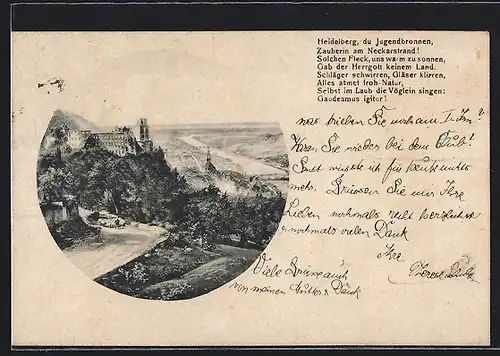 Heidelberg, du Jugendbronnen,
Zauberin am Neckarstrand!
Solchen Fleck, uns warm zu sonnen,
Gab der Herrgott keinem Land.
Schläger schwirren, Gläser klirren,
Alles atmet froh-Natur,
Selbst im Laub die Vöglein singen:
Gaudeamus igitur!
was trieben Sie noch am
Waren Sie wieder bei dem Club!
Sonst wüsste ich für heute nichts
mehr. Grüssen Sie mir Ihre
Lieben nochmals recht herzlichst
& nochmals vielen Dank
Ihre
Therese
Viele Grüsse auch
von meinen & Dank